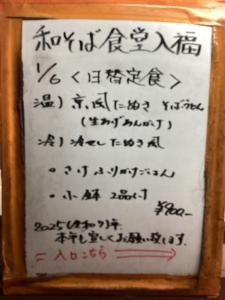 和そば食堂入福
1/6 <日替定食>
温) 京風たぬき そばうどん
(生あげあんかけ)
冷) 冷やしたぬき風
• さけふりかけごはん
• 小鉢 2品付
¥800-
2025(令和7)年
本年も宜しくお願い致します。
= 入口こちら ⇒